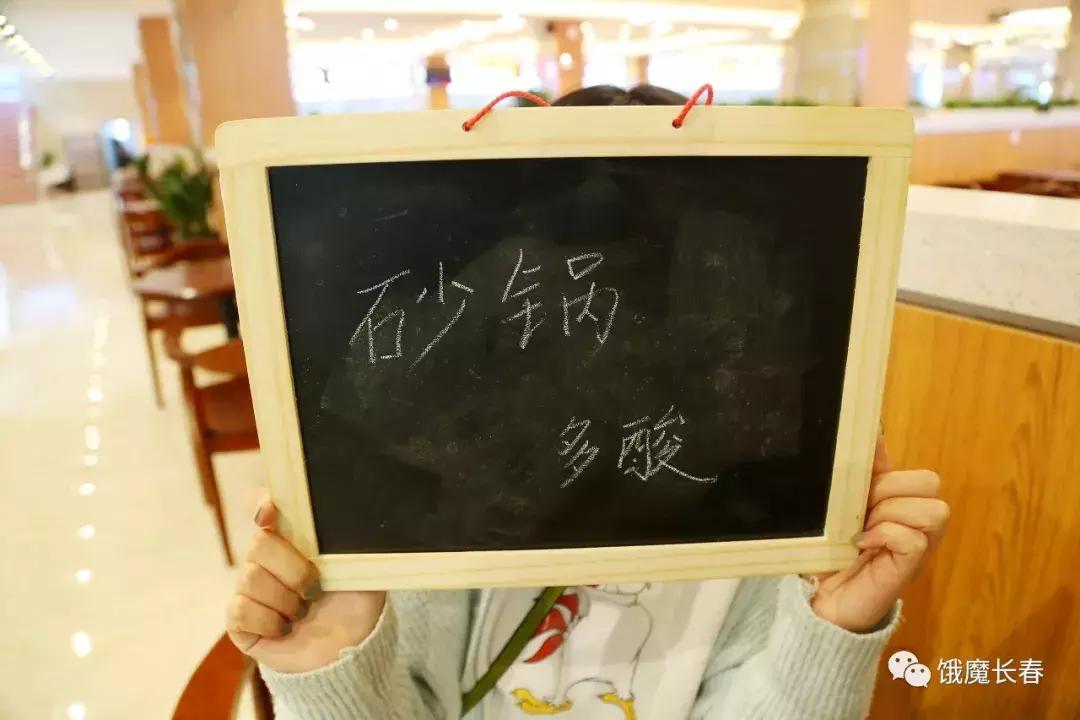 砂锅
多酸
饿魔长春